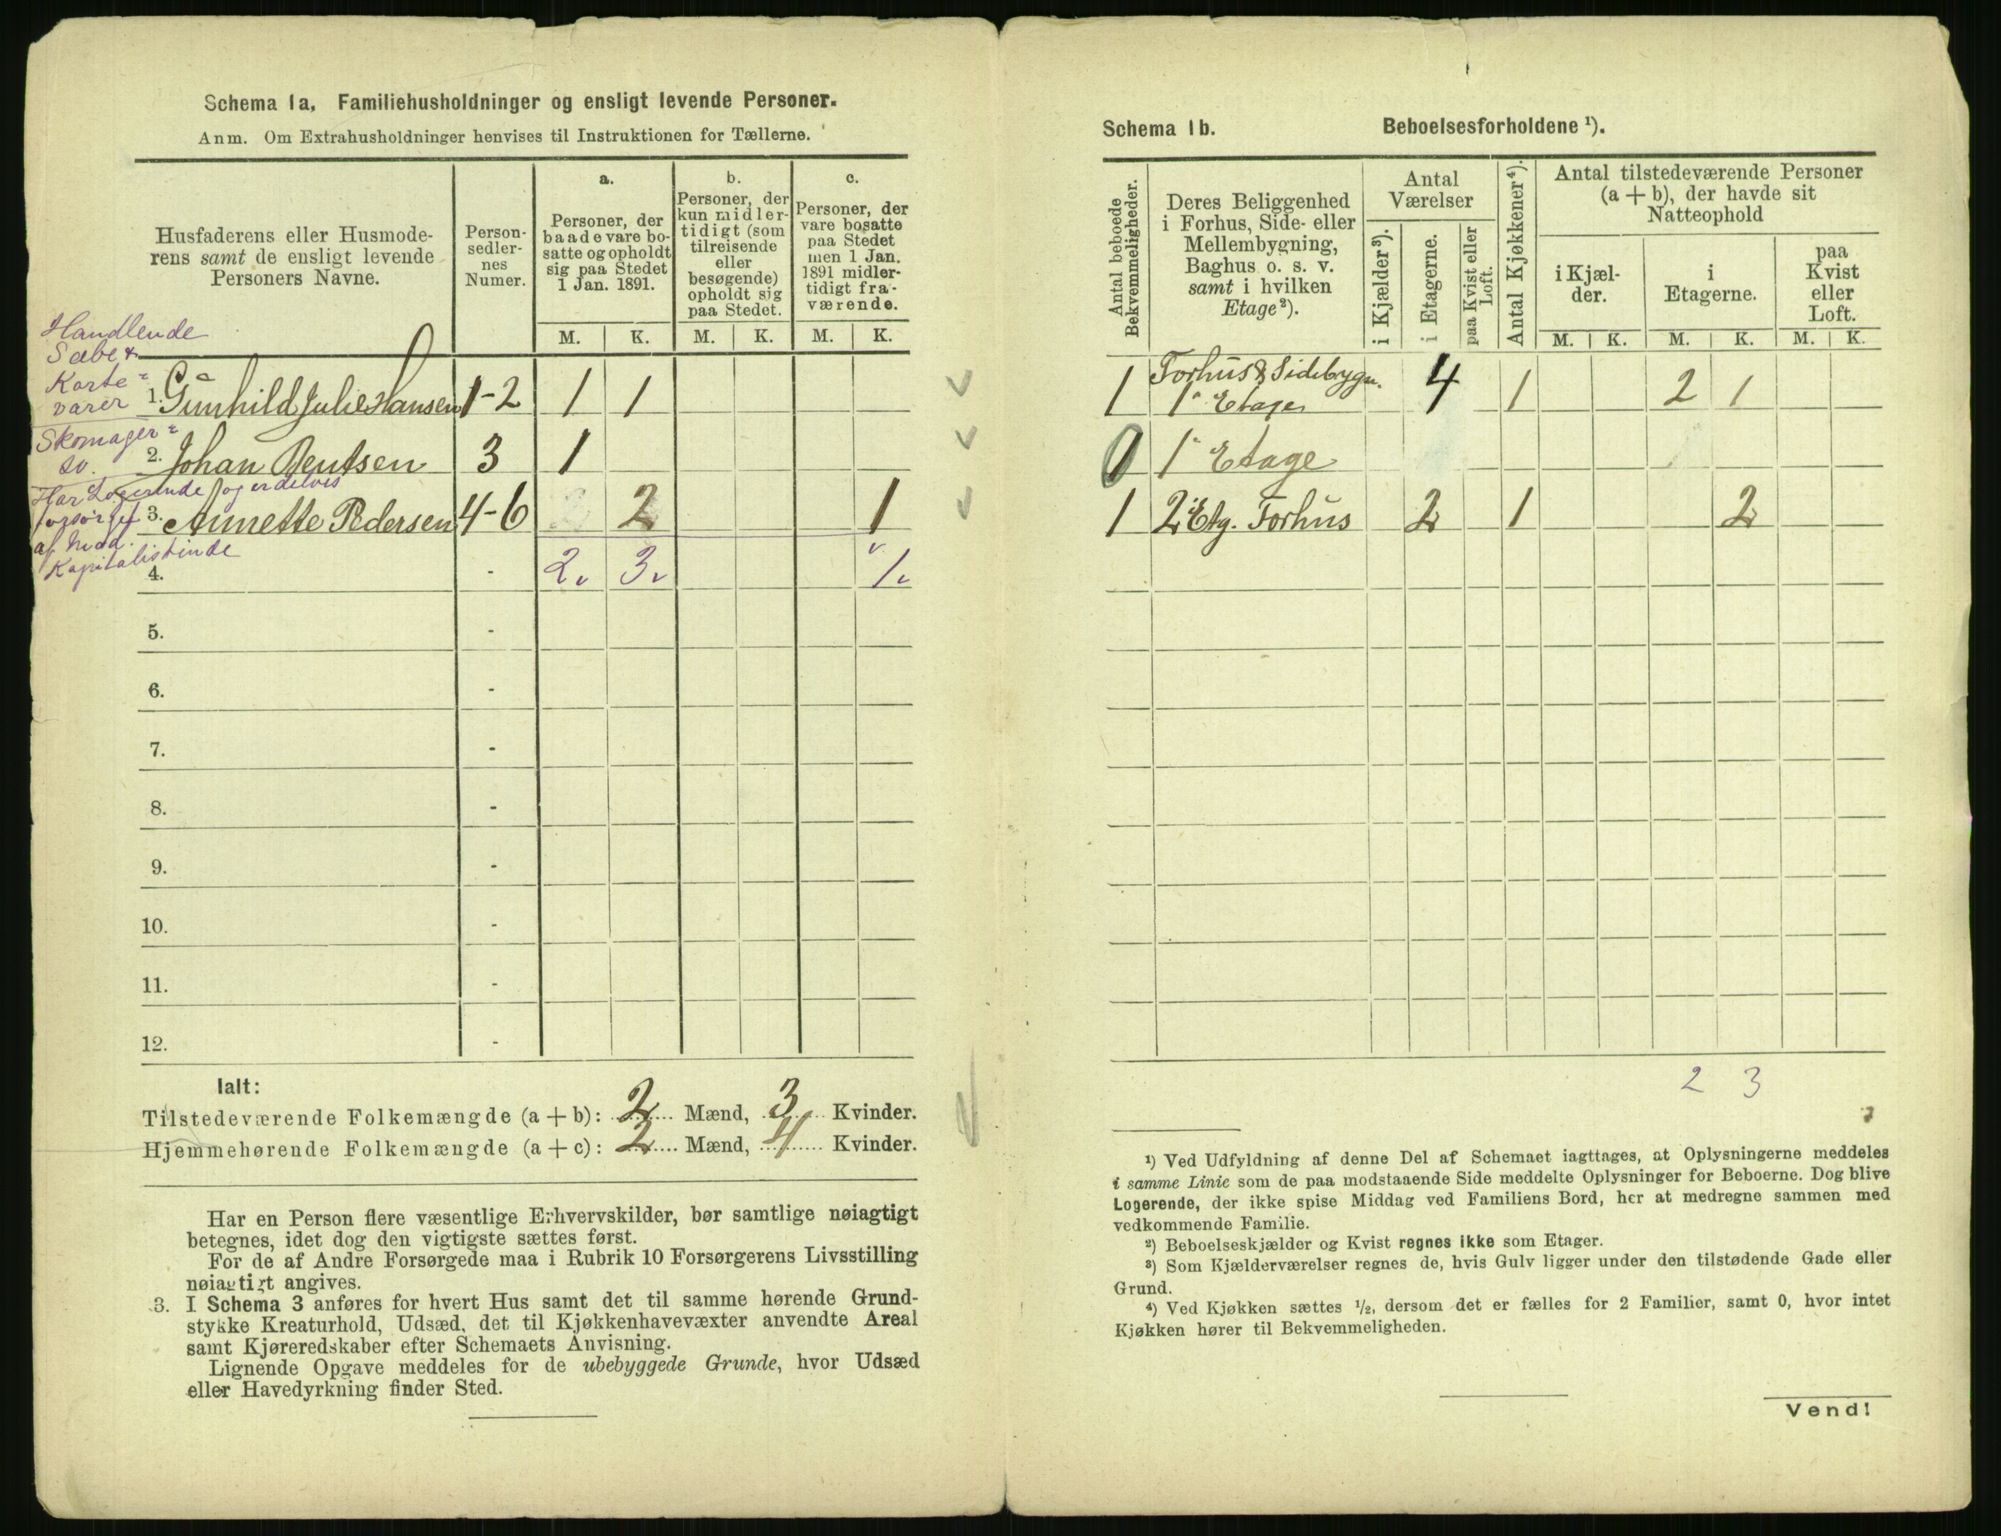 Schema 1a. Familiehusholdninger og ensligt levende Personer.
Anm. Om Extrahusholdninger henvises til Instruktionen for Tællerne.
Husfaderens eller Husmode-
rens samt de ensligt levende
Personers Navne.
Person-
sedler-
nes
Numer.
a.
Personer, der
baade vare bo-
satte og opholdt
sig paa Stedet
1 Jan. 1891.
b.
Personer, der
kun midler-
tidigt (som
tilreisende
eller
besøgende)
opholdt sig
paa Stedet.
c.
Personer, der
vare bosatte
paa Stedet
men 1 Jan.
1891 midler-
tidigt fra-
værende.
M. K. M. K. M. K.
Handlende
Sæbe &
Korte-
varer
1. Gunhild Julie Hansen 1-2 1 1
Skomager-
sv.
2. Johan Bentsen 3 1
Har Logerende og er delvis
forsørget
af
3. Annette Pedersen 4-6 2 1
Kapitalistinde
4. - 2 3 1
5. -
6. -
7. -
8. -
9. -
10. -
11. -
12. -
Ialt:
Tilstedeværende Folkemængde (a + b): 2 Mænd, 3 Kvinder.
Hjemmehørende Folkemængde (a + c): 2 Mænd, 4 Kvinder.
Har en Person flere væsentlige Erhvervskilder, bør samtlige nøiagtigt
betegnes, idet dog den vigtigste sættes først.
For de af Andre Forsørgede maa i Rubrik 10 Forsørgerens Livsstilling
nøiagtigt angives.
3. I Schema 3 anføres for hvert Hus samt det til samme hørende Grund-
stykke Kreaturhold, Udsæd, det til Kjøkkenhavevæxter anvendte Areal
samt Kjøreredskaber efter Schemaets Anvisning.
Lignende Opgave meddeles for de ubebyggede Grunde, hvor Udsæd
eller Havedyrkning finder Sted.
Schema 1b. Beboelsesforholdene ¹).
Antal beboede
Bekvemmeligheder.
Deres Beliggenhed
i Forhus, Side- eller
Mellembygning,
Baghus o. s. v.
samt i hvilken
Etage ²).
Antal
Værelser
i Kjælder ³).
i Etagerne.
paa Kvist eller
Loft.
Antal Kjøkkener ⁴).
Antal tilstedeværende Personer
(a + b), der havde sit
Natteophold
i Kjæl-
der.
i
Etagerne.
paa
Kvist
eller
Loft.
M. K. M. K. M. K.
Forhus & Sidebygn.
1 1" Etage 4 1 2 1
0 1" Etage
1 2 Etg. Forhus 2 1 2
2 3
¹) Ved Udfyldning af denne Del af Schemaet iagttages, at Oplysningerne meddeles
i samme Linie som de paa modstaaende Side meddelte Oplysninger for Beboerne. Dog blive
Logerende, der ikke spise Middag ved Familiens Bord, her at medregne sammen med
vedkommende Familie.
²) Beboelseskjælder og Kvist regnes ikke som Etager.
³) Som Kjælderværelser regnes de, hvis Gulv ligger under den tilstødende Gade eller
Grund.
⁴) Ved Kjøkken sættes ½, dersom det er fælles for 2 Familier, samt 0, hvor intet
Kjøkken hører til Bekvemmeligheden.
Vend!